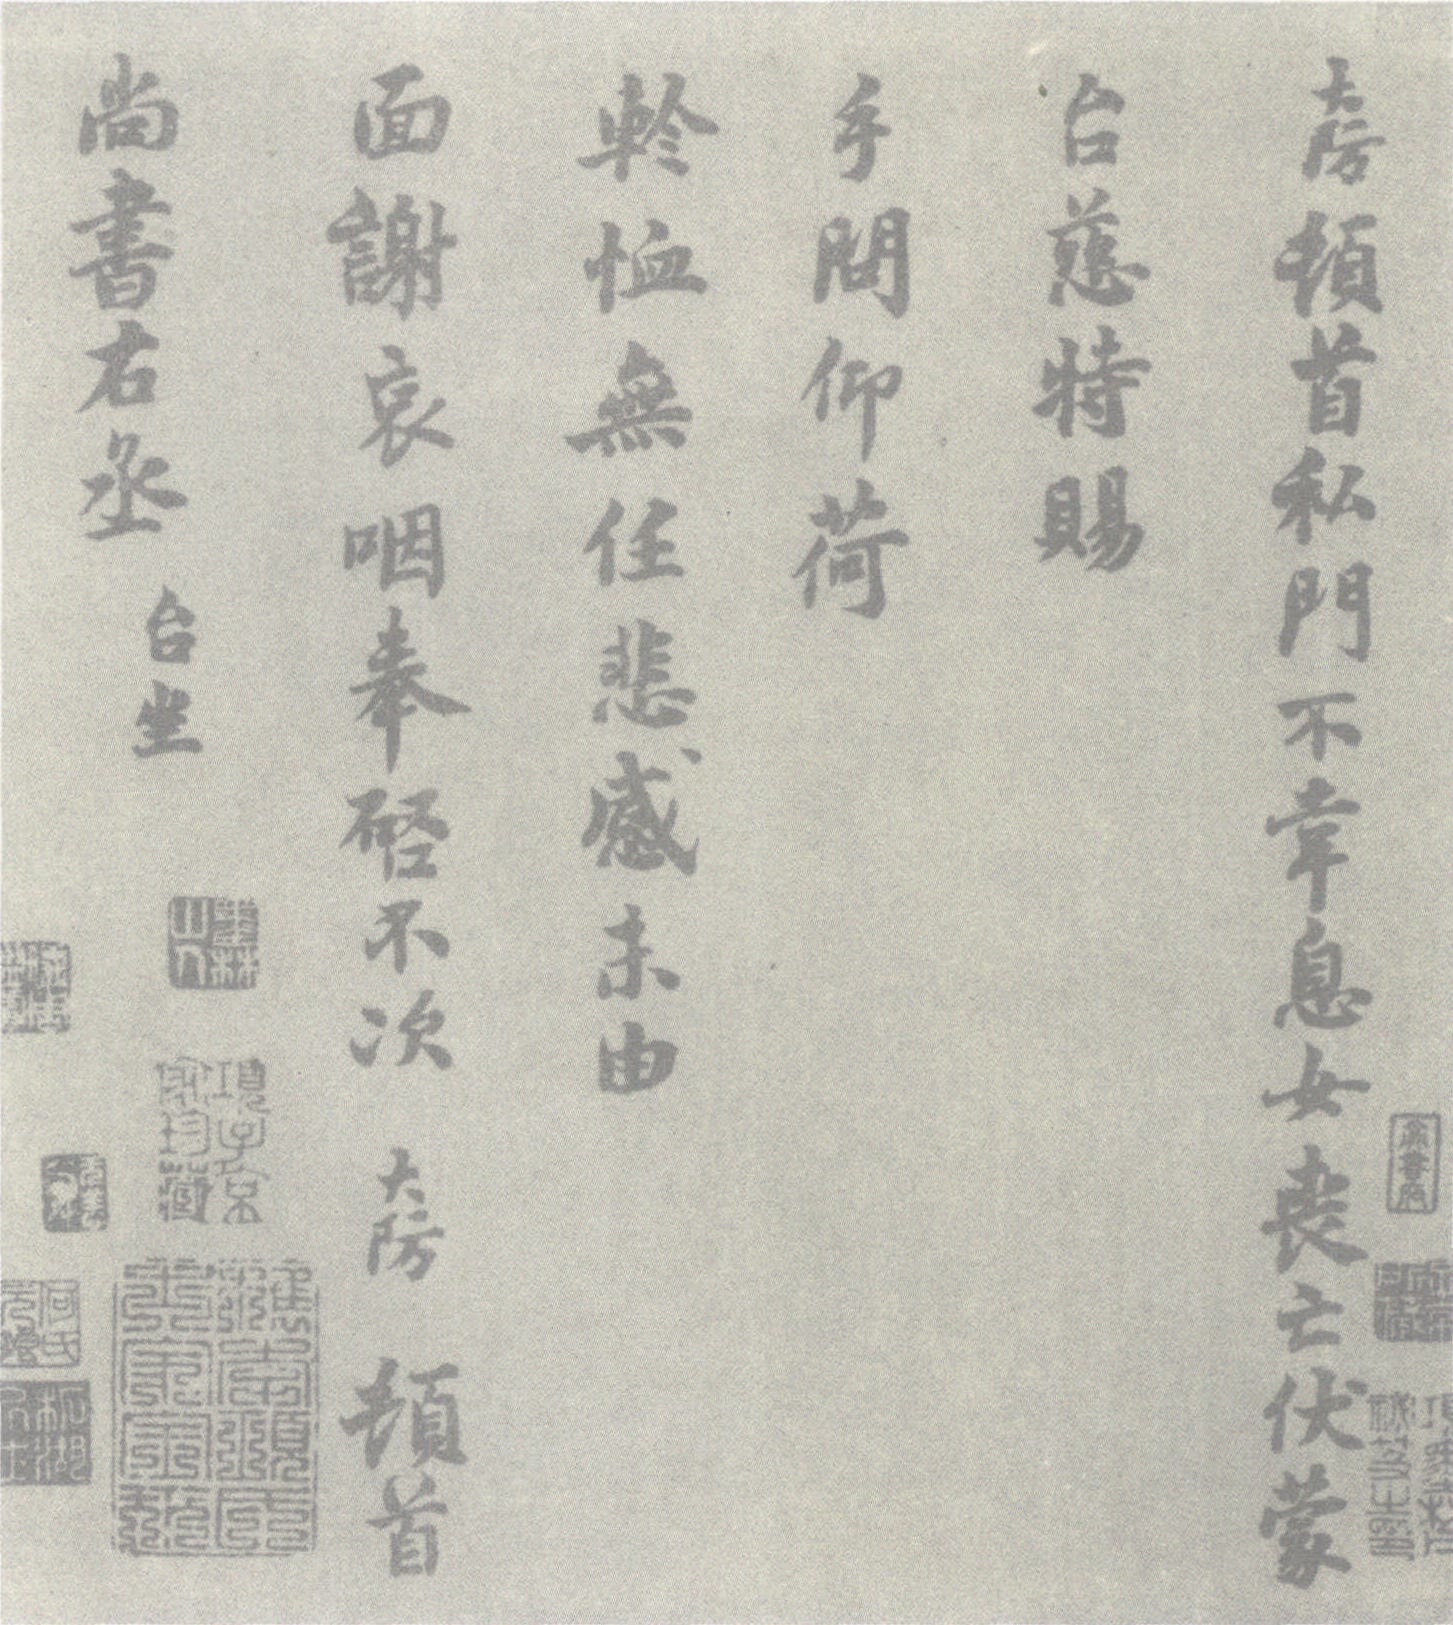 大防頓首私門不幸息女喪亡伏蒙
台慈特賜
手問仰荷
軫恤無任悲感未由
面謝哀咽奉啓不次 大防 頓首
尚書右丞 台坐
項子京家珍藏